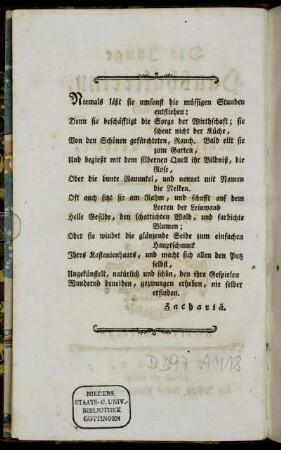 Niemals läßt sie umsonst die müssigen Stunden
entfliehen:
Denn sie beschäfftigt die Sorge der Wirthschaft; sie
scheut nicht der Küche,
Von den Schönen gefürchteten, Rauch. Bald eilt sie
zum Garten,
Und begießt mit dem silbernen Quell ihr Bildniß, die
Rose,
Oder die bunte Ranunkel, und nennet mit Namen
die Nelken.
Oft auch sitzt sie am Rahm, und schafft auf dem
Leeren der Leinwand
Helle Gefilde, den schattichten Wald, und farbichte
Blumen;
Oder sie windet die glänzende Seide zum einfachen
Hauptschmuck
Ihres Kastanienhaars, und macht sich allen den Putz
selbst,
Ungekünstelt, natürlich und schön, den ihre Gespielen
Wundernd beneiden, gezwungen erheben, nie selber
erfinden.
Zachariä.
DD97 A 418
NIEDERS.
STAATS- U. UNIV.-
BIBLIOTHEK
GÖTTINGEN